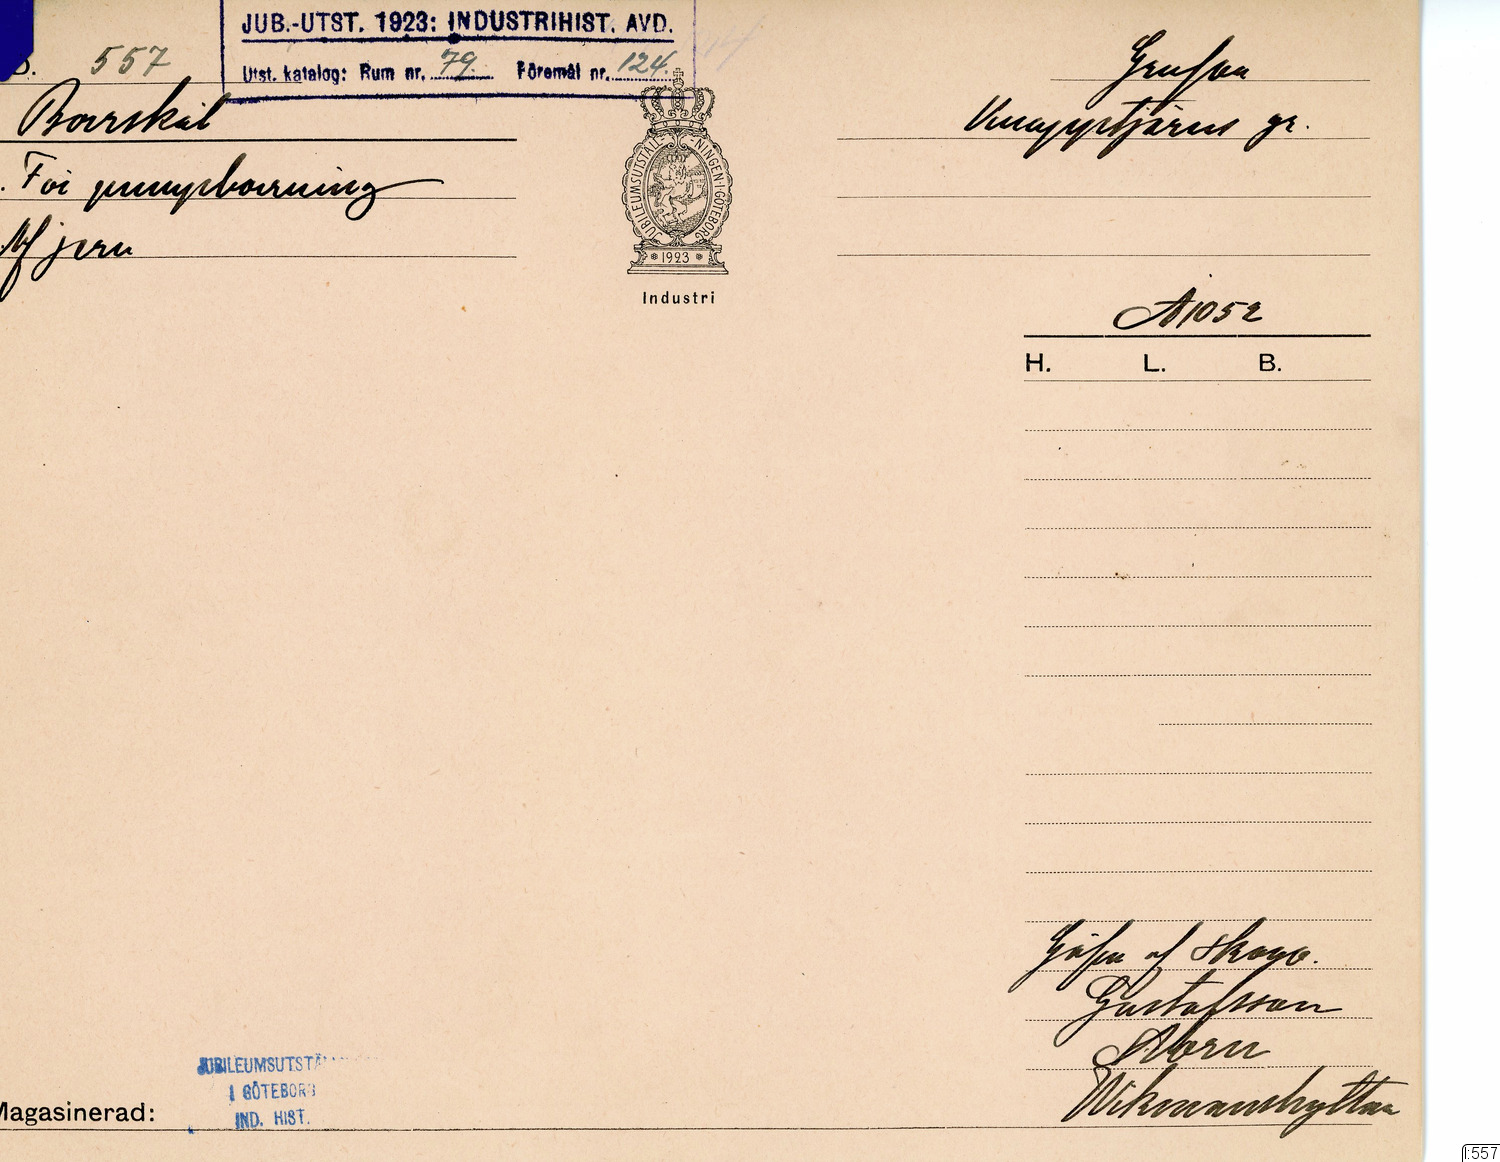 JUB.-UTST. 1923: INDUSTRIHIST. AVD.
Utst. katalog: Rum nr. 79. Föremål nr. 124.
557
Borrskål
För pumpborrning
Af järn
JUBILEUMSUTSTÄLLNINGEN·I·GÖTEBORG
1923
Industri
Grufva
gr.
A1052
H. L. B.
Gåfva af Skogv.
Gustafsson
Åborn
Wikmanshyttan
JUBILEUMSUTSTÄ
I GÖTEBORG
IND. HIST.
Magasinerad:
I:557